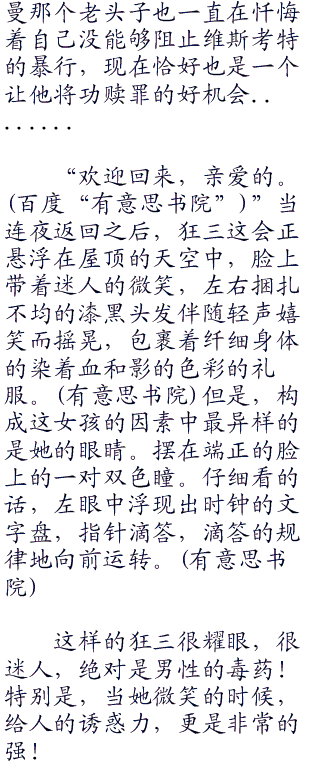 曼那个老头子也一直在忏悔
着自己没能够阻止维斯考特
的暴行，现在恰好也是一个
让他将功赎罪的好机会..
......
“欢迎回来，亲爱的。
(百度“有意思书院”)”当
连夜返回之后，狂三这会正
悬浮在屋顶的天空中，脸上
带着迷人的微笑，左右捆扎
不均的漆黑头发伴随轻声嬉
笑而摇晃，包裹着纤细身体
的染着血和影的色彩的礼
服。(有意思书院)但是，构
成这女孩的因素中最异样的
是她的眼睛。摆在端正的脸
上的一对双色瞳。仔细看的
话，左眼中浮现出时钟的文
字盘，指针滴答，滴答的规
律地向前运转。(有意思书
院)
这样的狂三很耀眼，很
迷人，绝对是男性的毒药！
特别是，当她微笑的时候，
给人的诱惑力，更是非常的
强！